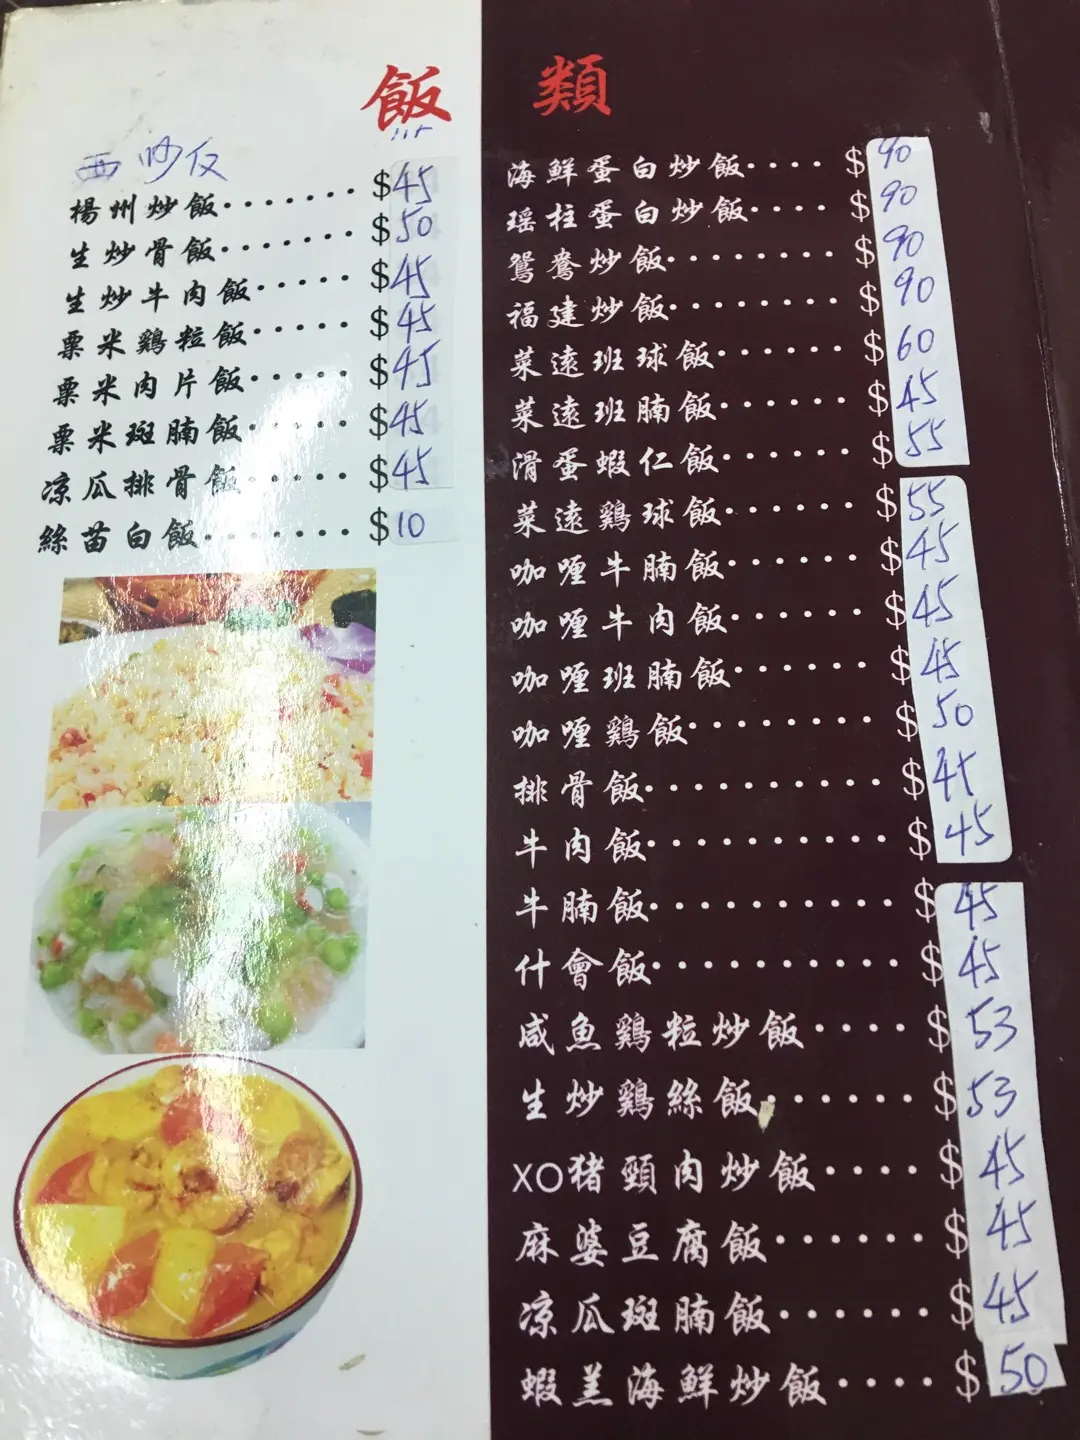 飯類
西炒飯
楊州炒飯········$45
生炒骨飯········$50
生炒牛肉飯·····$45
粟米鷄粒飯·····$45
粟米肉片飯·····$45
粟米斑腩飯·····$45
凉瓜排骨飯·····$45
絲苗白飯········$10
海鮮蛋白炒飯····$90
瑶柱蛋白炒飯····$90
鴛鴦炒飯········$90
福建炒飯········$90
菜遠班球飯······$60
菜遠班腩飯······$45
滑蛋蝦仁飯······$55
菜遠鷄球飯······$55
咖喱牛腩飯······$45
咖喱牛肉飯······$45
咖喱班腩飯······$45
咖喱鷄飯········$50
排骨飯··········$45
牛肉飯··········$45
牛腩飯··········$45
什會飯··········$45
咸魚鷄粒炒飯····$53
生炒鷄絲飯······$53
XO猪頸肉炒飯····$45
麻婆豆腐飯······$45
凉瓜斑腩飯······$45
蝦羔海鮮炒飯····$50